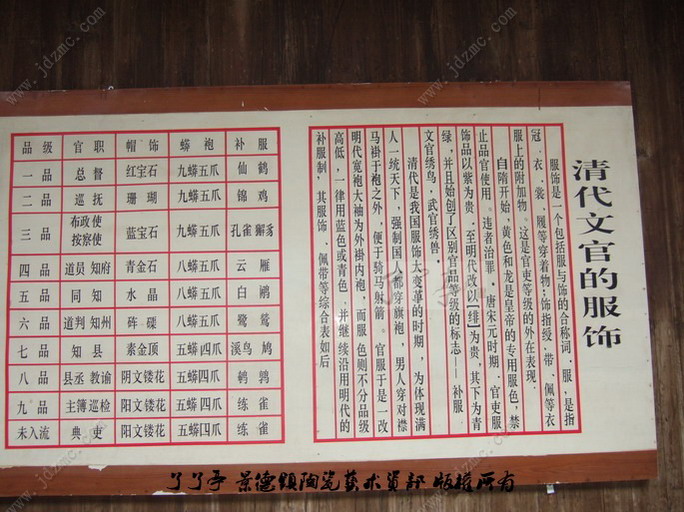 清代文官的服饰
服饰是一个包括服与饰的合称词，服，是指
冠、衣、裳、履等穿着物；饰指绶、带、佩等衣
服上的附加物。这是官吏等级的外在表现。
自隋开始，黄色和龙是皇帝的专用服色，禁
止品官使用。违者治罪，唐宋元时期，官吏服
饰品以紫为贵，至明代改以【绯】为贵，其下为青
绿，并且始创了区别官品等级的标志——补服，
文官绣鸟，武官绣兽，
清代是我国服饰大变革的时期，为体现满
人一统天下，强制国人都穿旗袍，男人穿对襟
马褂于袍之外，便于骑马射箭。官服于是一改
明代宽袍大袖为外褂内袍，而服色则不分品级
高低，一律用蓝色或青色，并继续沿用明代的
补服制，其服饰、佩带等综合表如后
品级 官职 帽饰 蟒袍 补服
一品 总督 红宝石 九蟒五爪 仙鹤
二品 巡抚 珊瑚 九蟒五爪 锦鸡
三品 布政使 按察使 蓝宝石 九蟒五爪 孔雀 獬豸
四品 道员 知府 青金石 八蟒五爪 云雁
五品 同知 水晶 八蟒五爪 白鹇
六品 道判 知州 砗磲 八蟒五爪 鹭鸶
七品 知县 素金顶 五蟒四爪 溪鸟 鸠
八品 县丞 教谕 阴文镂花 五蟒四爪 鹌鹑
九品 主簿 巡检 阳文镂花 五蟒四爪 练雀
未入流 典吏 阳文镂花 五蟒四爪 练雀
了了亭 景德镇陶瓷艺术资部 版权所有
www.jdzmc.com